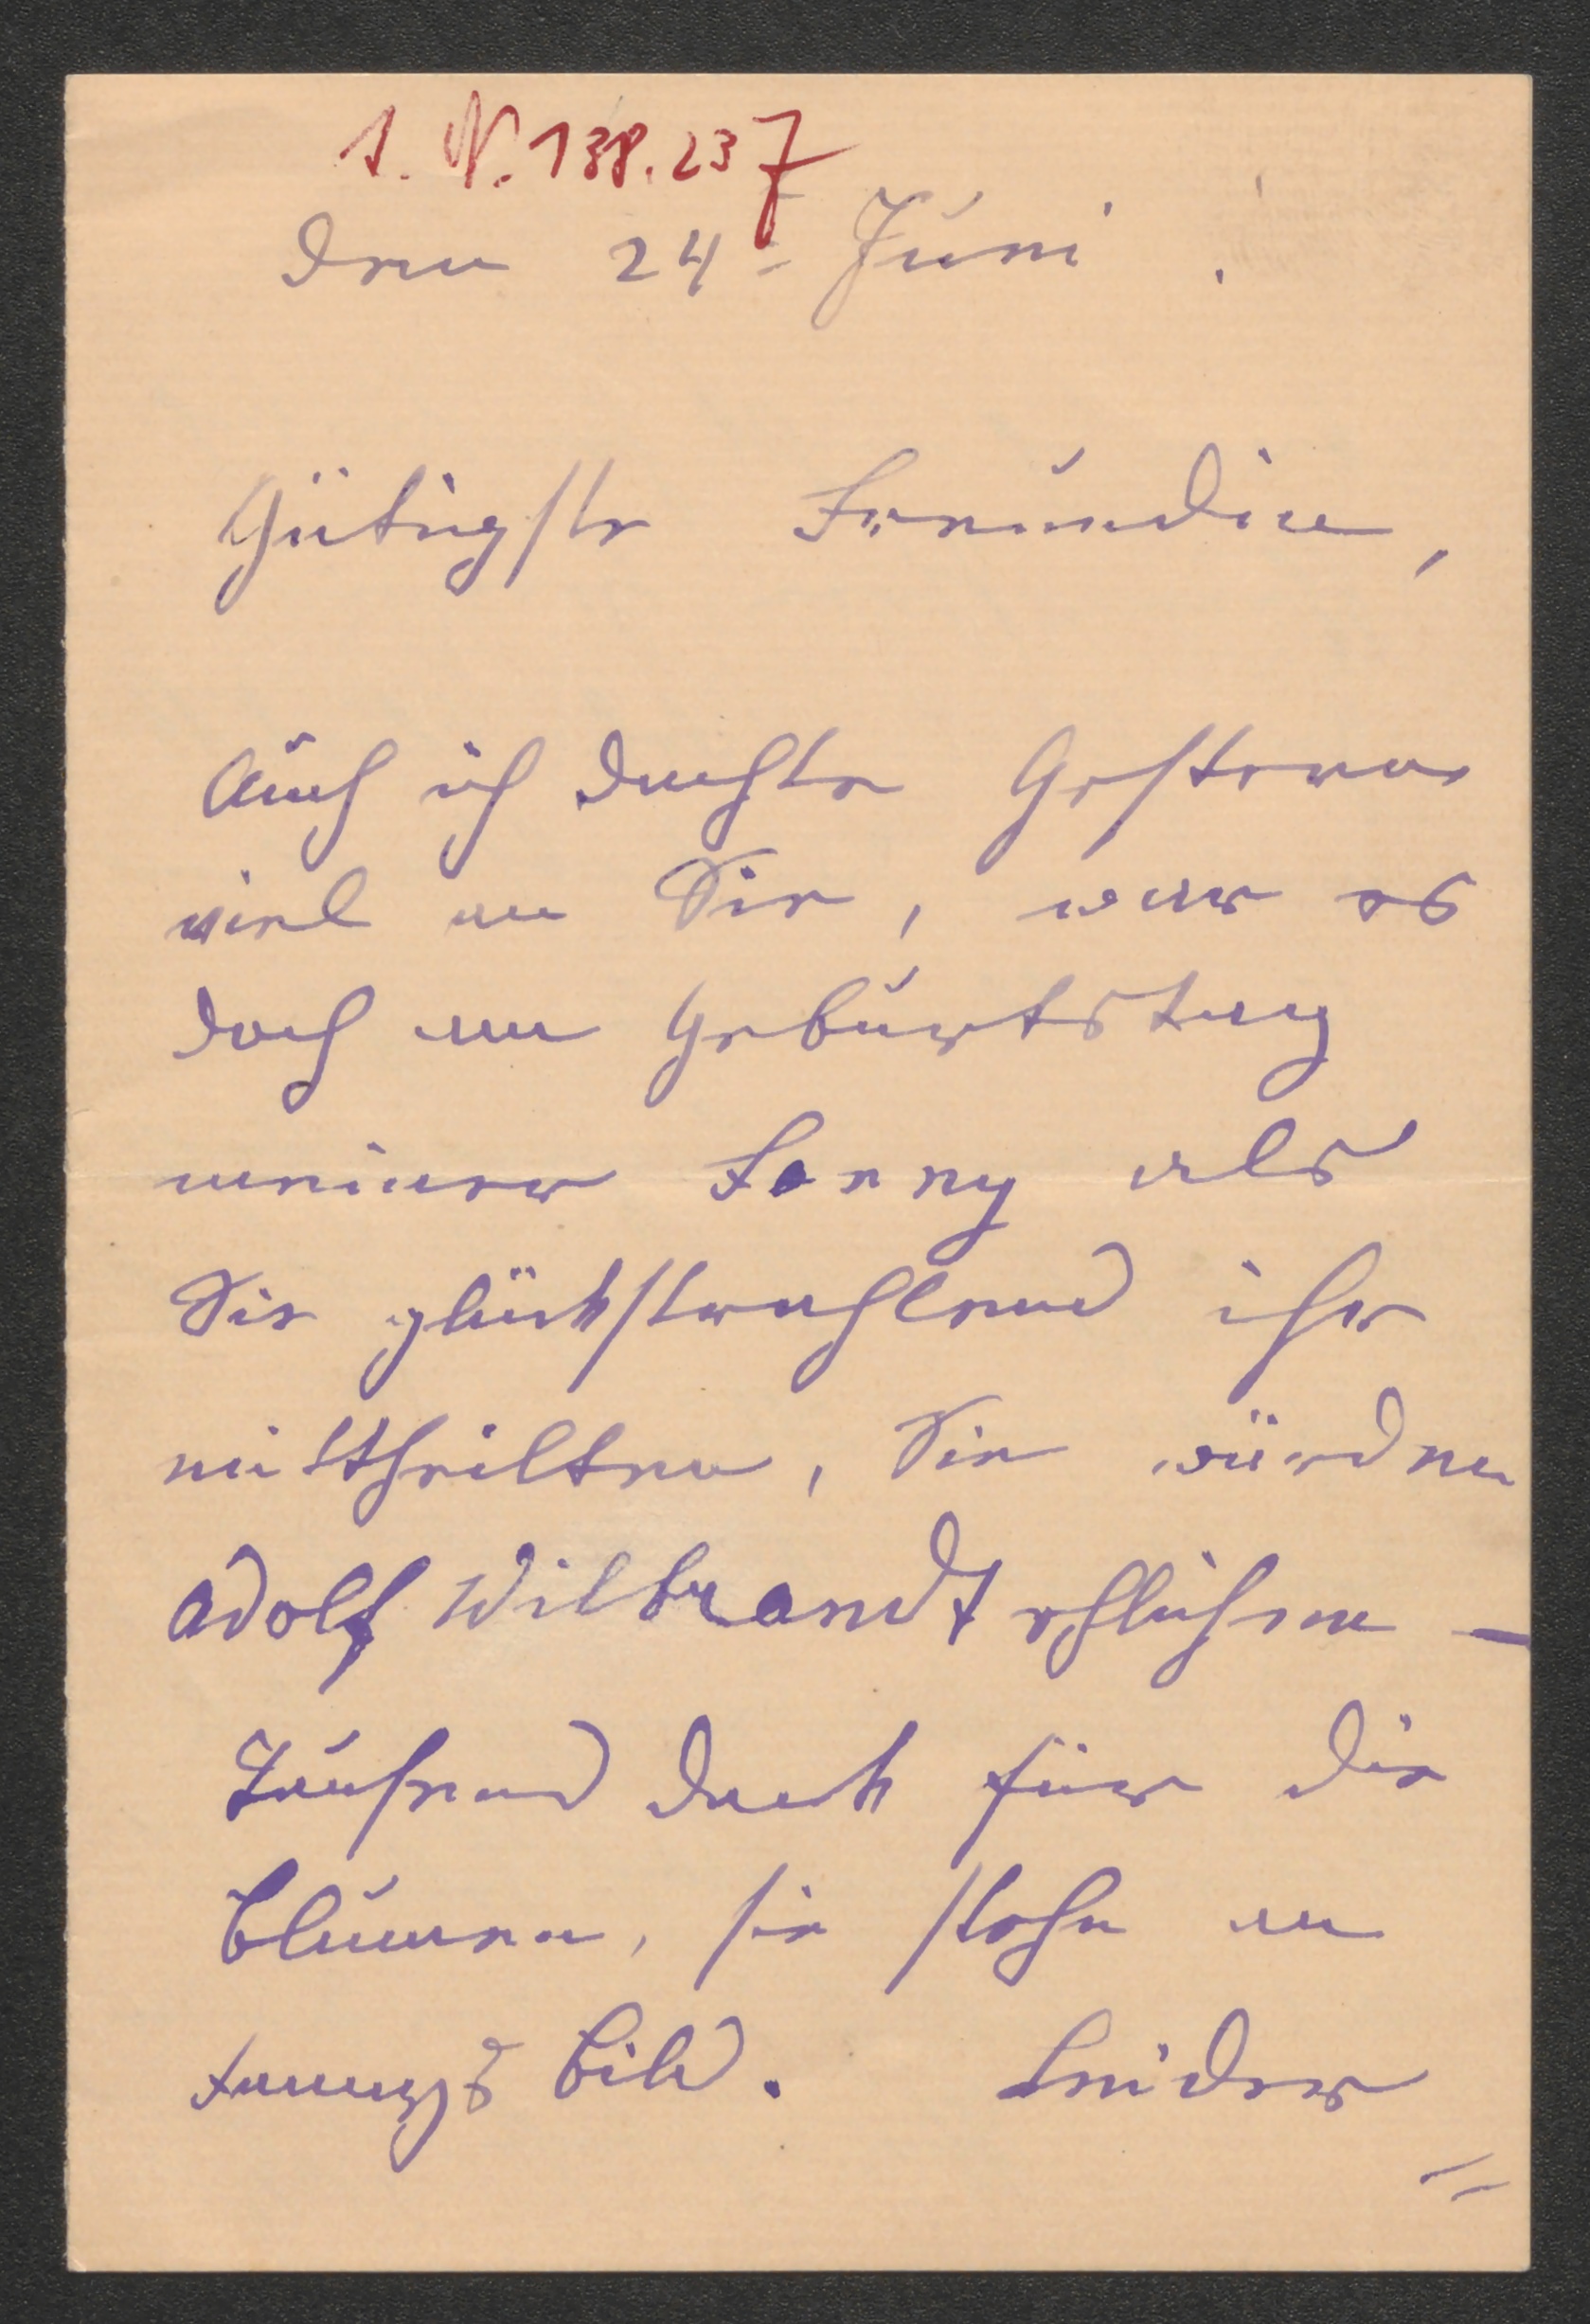 I. N. 138.237
den 24 - Juni.
Gütigste Freundin,
Auch ich dachte Gestern
viel an Sie, war es
doch am Geburtstag
meiner Fanny als
Sie glückstrahlend ihr
mittheilten, Sie würden
Adolf Wilbrandt ehlichen –
Tausend dank für die
Blumen, sie stehn an
Fannys Bild. Leider